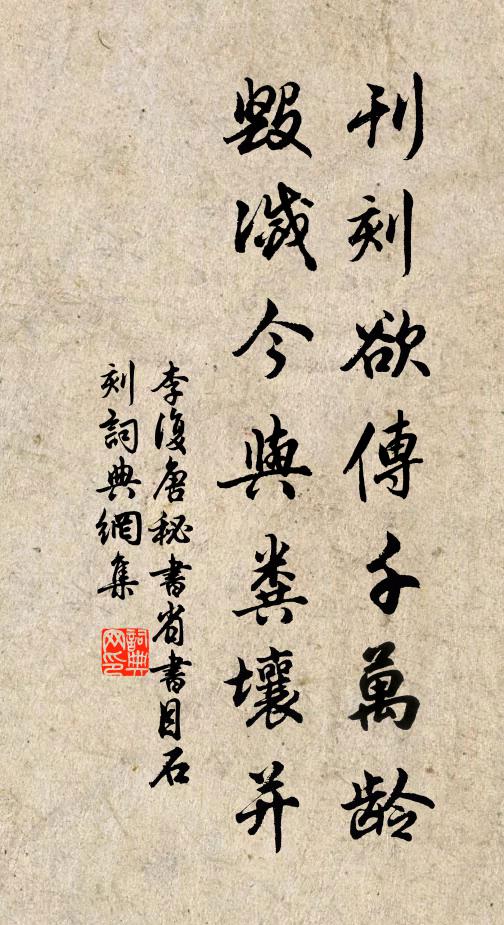 刊刻欲傳千萬龄
毀滅今與糞壤并
李復唐秘書省書目石
刻詞典網集
詞典网印